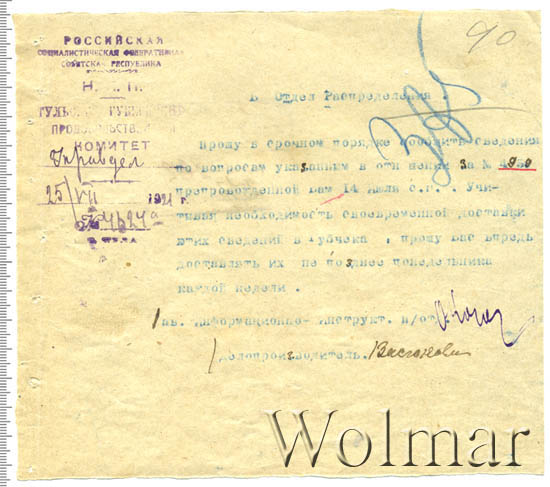 РОССИЙСКАЯ
СОЦИАЛИСТИЧЕСКАЯ ФЕДЕРАТИВНАЯ
СОВЕТСКАЯ РЕСПУБЛИКА
Н. П.
КОМИТЕТ
25/VII 1921 г
№ 4624
г. ТУЛА
90
В Отдел Распределения.
Прошу в срочном порядке сообщить сведения
по вопросам указанным в отн шении за №
препровожденной Вам 14 Июля с.г. . Учи-
тывая необходимость своевременной доставки
этих сведений в Губчека , прошу Вас впредь
доставлять их не позднее понедельника
каждой недели .
Зав. Информационно- Инструкт. п/отд
Делопроизводитель.
Wolmar